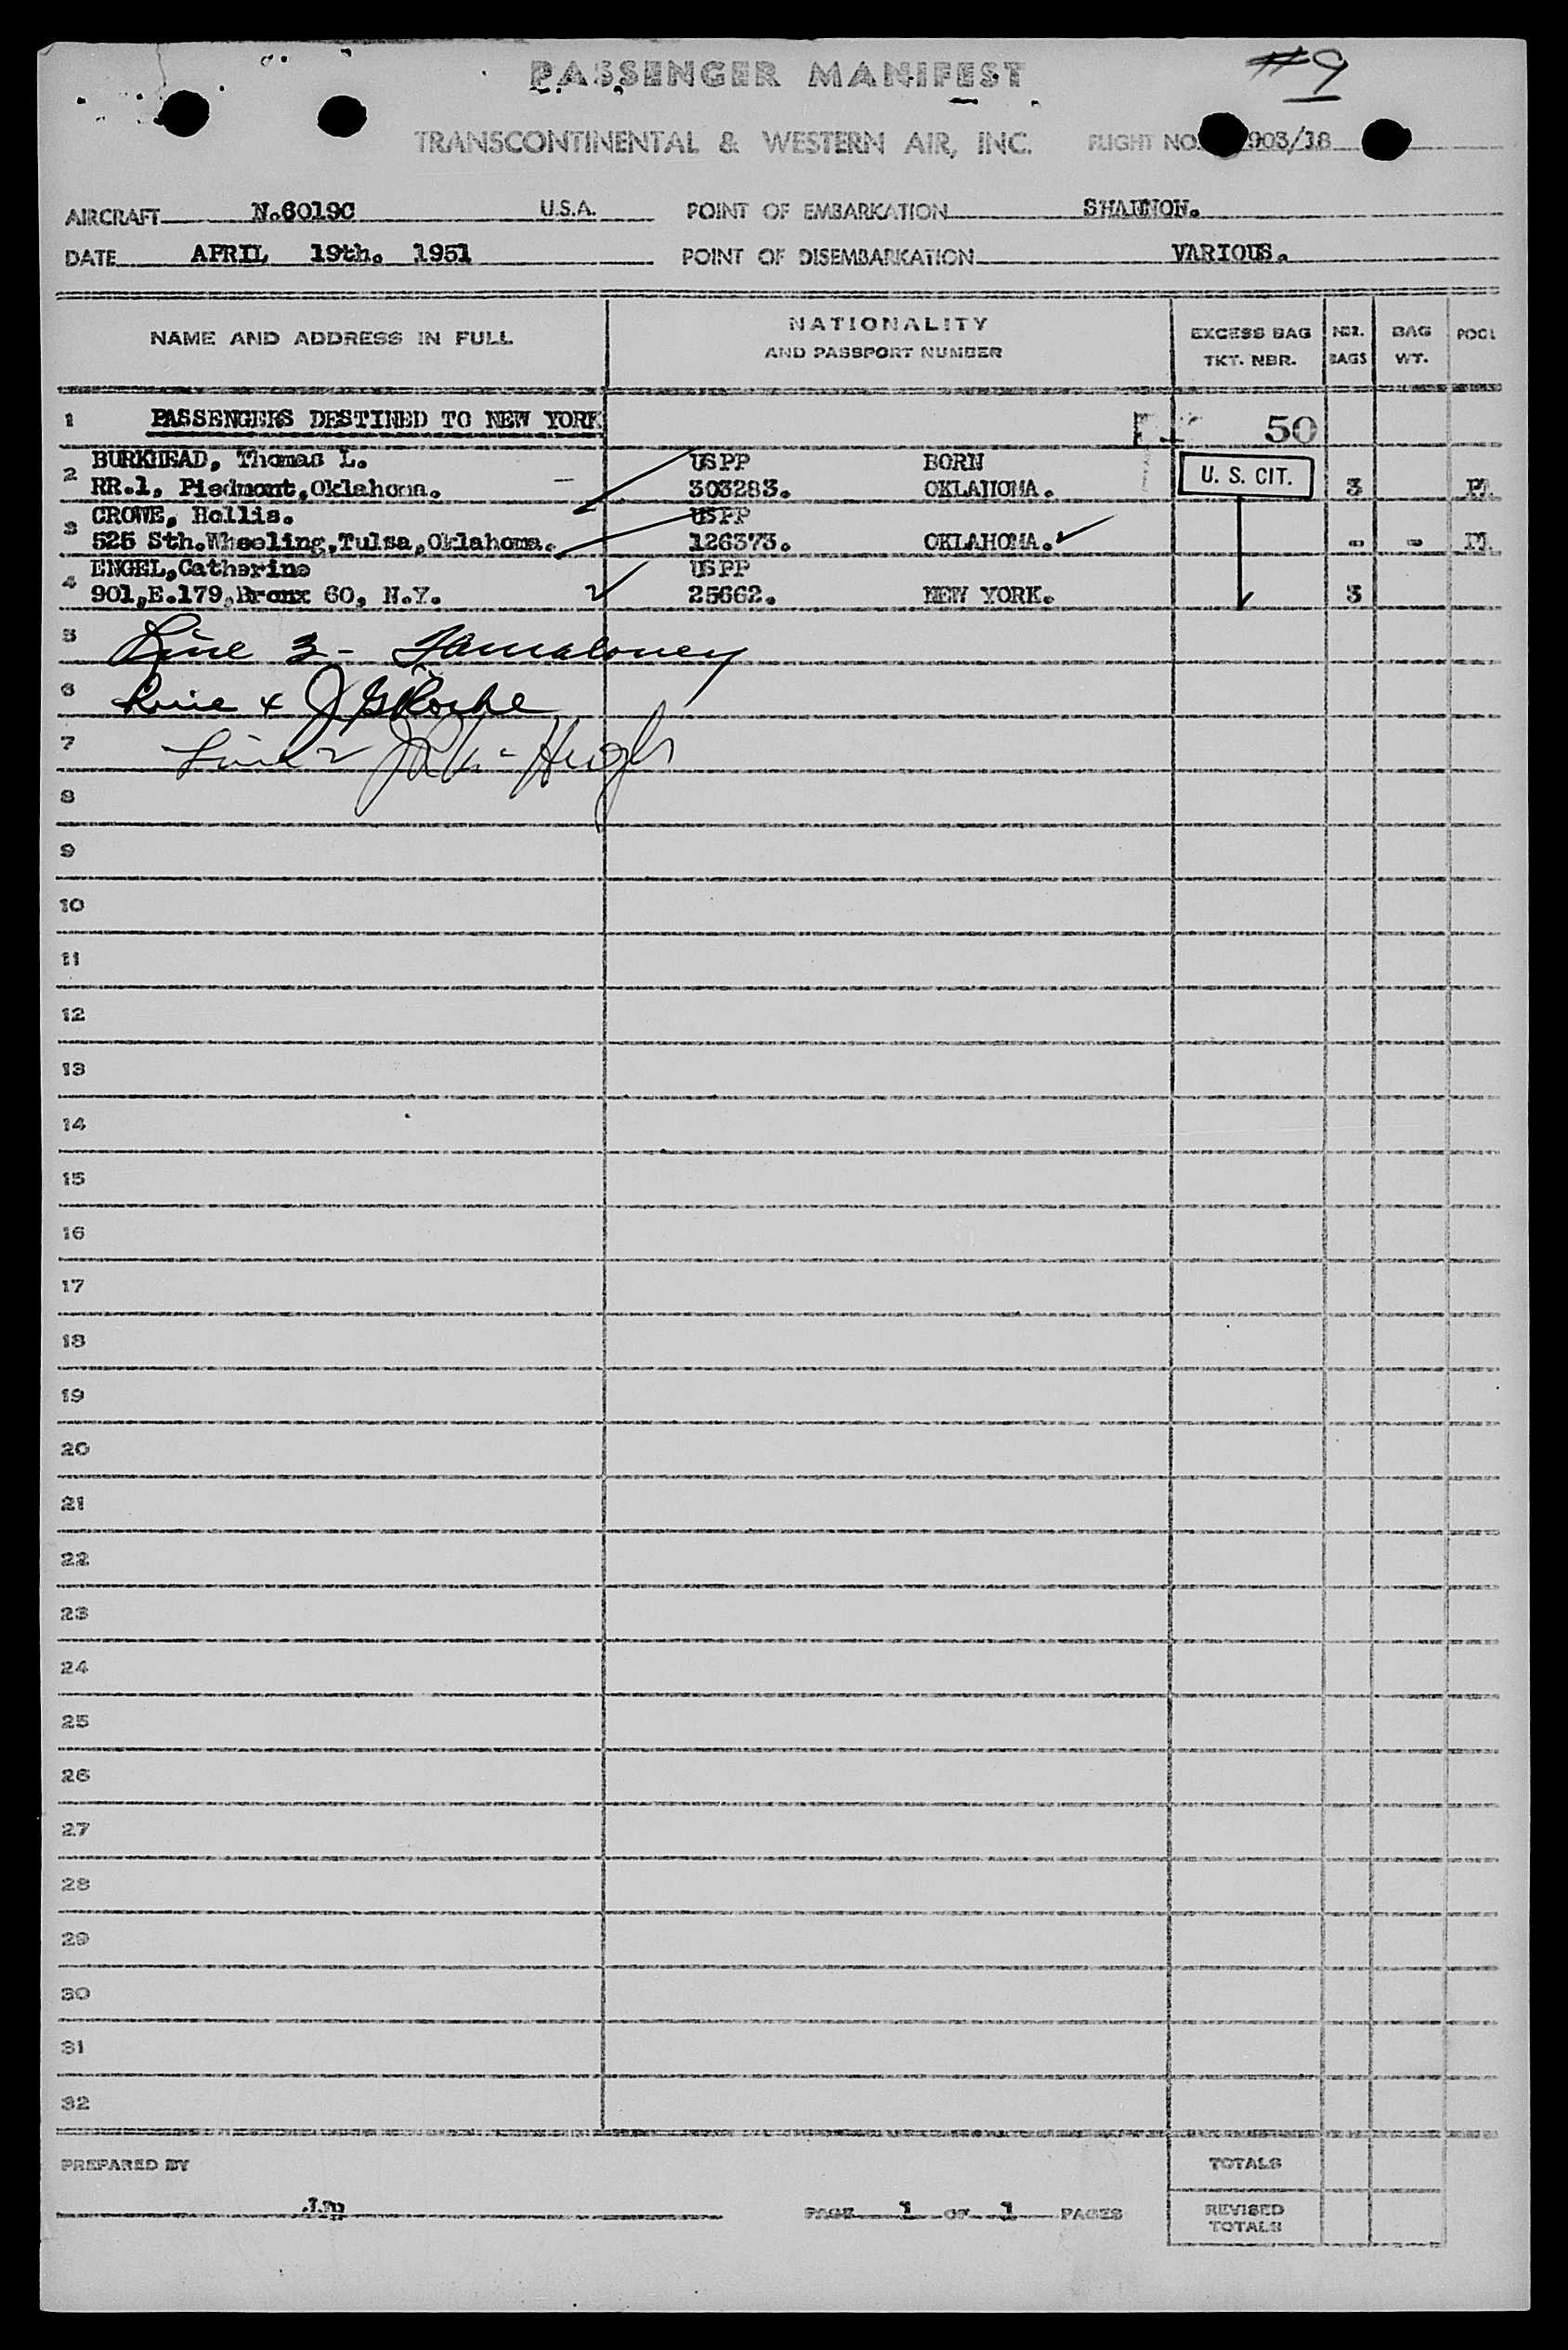 #9
PASSENGER MANIFEST
TRANSCONTINENTAL & WESTERN AIR, INC. FLIGHT NO. 903/18
AIRCRAFT N.6019C U.S.A. POINT OF EMBARKATION SHANNON.
DATE APRIL 19th. 1951 POINT OF DISEMBARKATION VARIOUS.
NAME AND ADDRESS IN FULL
NATIONALITY
AND PASSPORT NUMBER
EXCESS BAG
TKT. NBR.
NBR.
BAGS
BAG
WT.
POOL
1 PASSENGERS DESTINED TO NEW YORK 50
BURKHEAD, Thomas L. USPP BORN U. S. CIT.
2 RR.1, Piedmont,Oklahoma. 303283. OKLAHOMA. 3
CROWE, Hollis. USPP
3 525 Sth.Wheeling,Tulsa,Oklahoma. 126373. OKLAHOMA. - -
ENGEL,Catherine USPP
4 901,E.179,Bronx 60, N.Y. 25662. NEW YORK. 3
5 Line 3 -
6 Line 4 J G Roche
7 Line 2
8
9
10
11
12
13
14
15
16
17
18
19
20
21
22
23
24
25
26
27
28
29
30
31
32
PREPARED BY
PAGE 1 OF 1 PAGES
TOTALS
REVISED
TOTALS